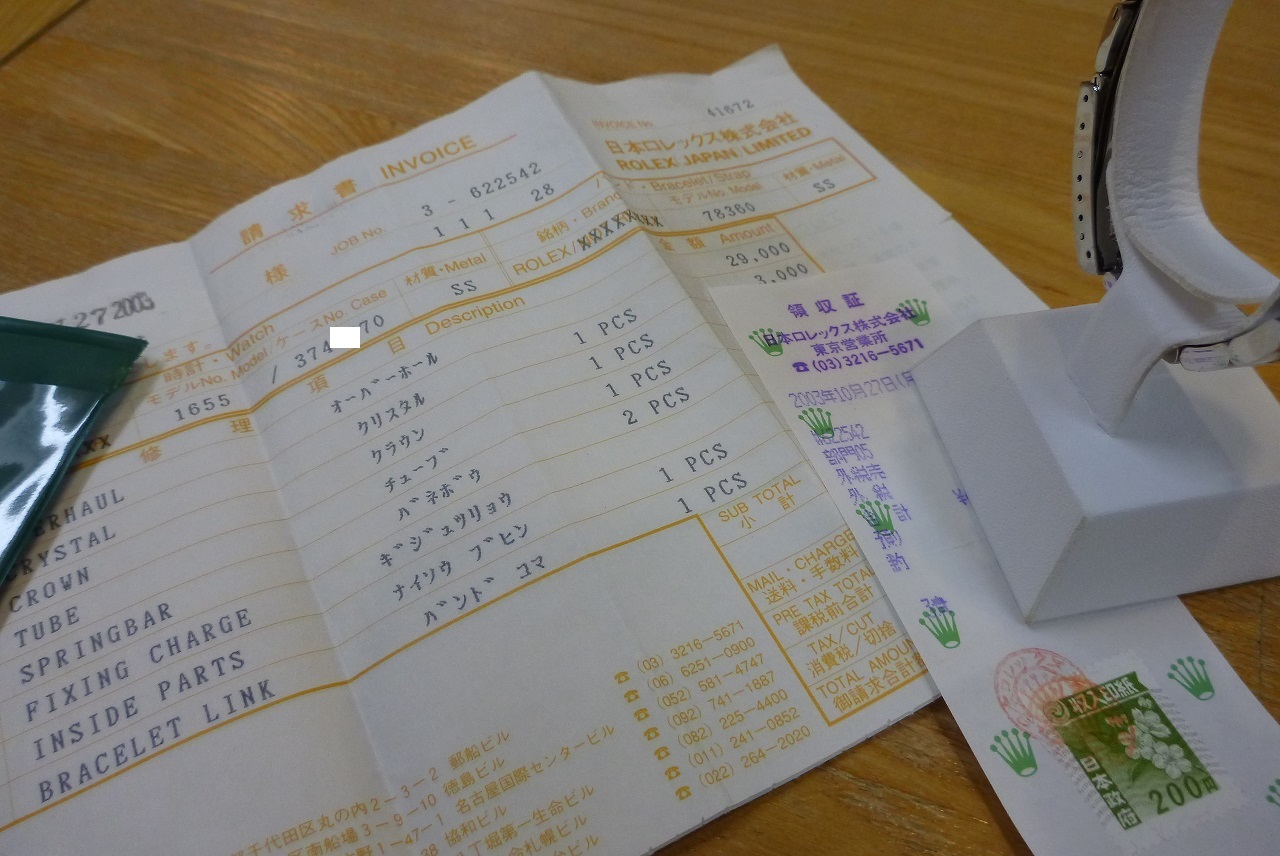 請求書 INVOICE
INVOICE No. 41672
日本ロレックス株式会社
ROLEX JAPAN LIMITED
27 2003
様
JOB No. 3 - 622542
11 28
ます。
時計・Watch
モデルNo. Model / ケースNo. Case
材質・Metal
銘柄・Brand
ド・Bracelet/Strap
モデルNo. Model
材質・Metal
1655 / 374 70
SS
ROLEX/XXXXXXX
78360
SS
修理項目 Description
金額 Amount
ERHAUL オーバーホール 29,000
CRYSTAL クリスタル 1 PCS 3,000
CROWN クラウン 1 PCS
TUBE チューブ 1 PCS
SPRINGBAR バネボウ 2 PCS
FIXING CHARGE ギジュツリョウ
INSIDE PARTS ナイソウ ブヒン 1 PCS
BRACELET LINK バンド コマ 1 PCS
SUB TOTAL
小計
MAIL・CHARGE
送料・手数料
PRE TAX TOTAL
課税前合計
TAX/CUT
消費税/切捨
TOTAL AMOUN
御請求合計
千代田区丸の内2-3-2 郵船ビル ☎ (03) 3216-5671
区南船場3-9-10 徳島ビル ☎ (06) 6251-0900
1-47-1 名古屋国際センタービル ☎ (052) 581-4747
協和ビル ☎ (092) 741-1887
丁堀第一生命ビル ☎ (082) 225-4400
札幌ビル ☎ (011) 241-0852
ビル ☎ (022) 264-2020
領収証
日本ロレックス株式会社
東京営業所
☎(03)3216-5671
2003年10月27日(月
部門05
外税売
外税
計
収入印紙
日本政府
200円